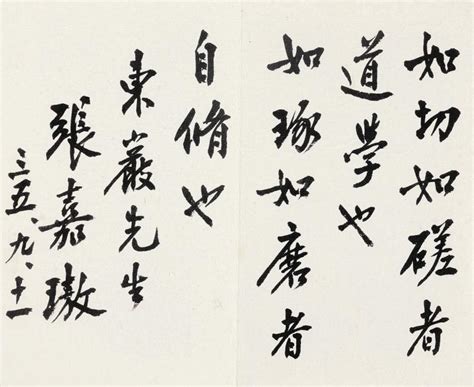 如切如磋者
道學也
如琢如磨者
自脩也
東嚴先生
張嘉璈
三五、九、十一